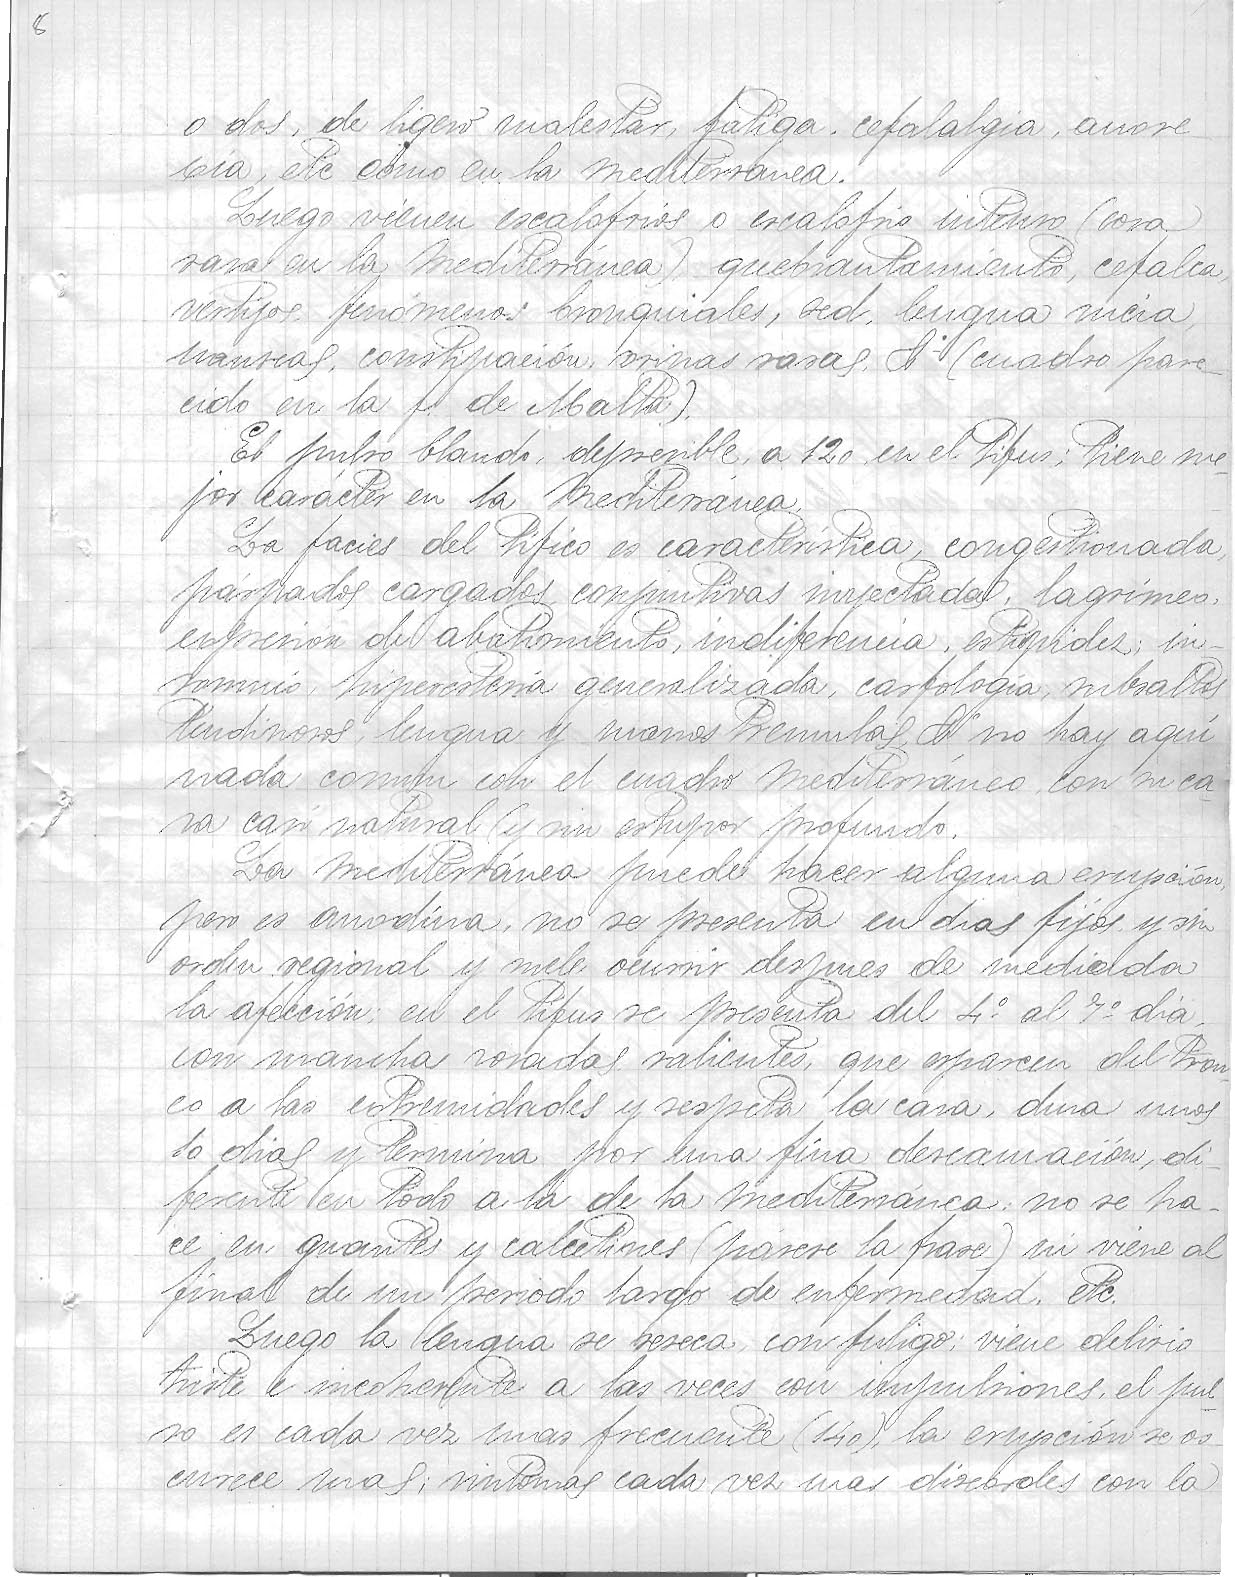 8
o dos, de ligero malestar, fatiga, cefalalgia, anore
xia, etc como en la Mediterránea.
Luego vienen escalofrios o escalofrio intenso (cosa
rara en la Mediterránea), quebrantamiento, cefalea,
vertigos, fenómenos bronquiales, sed, lengua sucia,
nauseas, constipación, orinas raras, &ª (cuadro pare-
cido en la f. de Malta).
El pulso blando, depresible, a 120 en el tifus; tiene me-
jor carácter en la Mediterránea.
La facies del tifico es característica, congestionada,
párpados cargados, conjuntivas inyectadas, lagrimeo,
expresion de abatimiento, indiferencia, estupidez; in-
somnio, hiperestesia generalizada, carfologia, subsaltos
tendinosos, lengua y manos tremulas, &ª no hay aquí
nada comun con el cuadro mediterráneo, con su ca-
ra casi natural (y sin estupor profundo.
La Mediterránea puede hacer alguna erupción,
pero es anodina, no se presenta en dias fijos y sin
orden regional y suele ocurrir despues de mediada
la afección; en el tifus se presenta del 4º al 7º dia
con mancha rosadas salientes, que esparcen del tron-
co a las extremidades y respeta la cara, dura unos
10 dias y termina por una fina descamación, di-
ferente en todo a la de la Mediterránea; no se ha-
ce en guantes y calcetines (pásese la frase) ni viene al
final de un periodo largo de enfermedad, etc.
Luego la lengua se reseca, con fuligo; viene delirio
triste e incoherente a las veces con impulsiones, el pul-
so es cada vez mas frecuente (140), la erupción se os-
curece mas; sintomas cada vez mas discordes con la